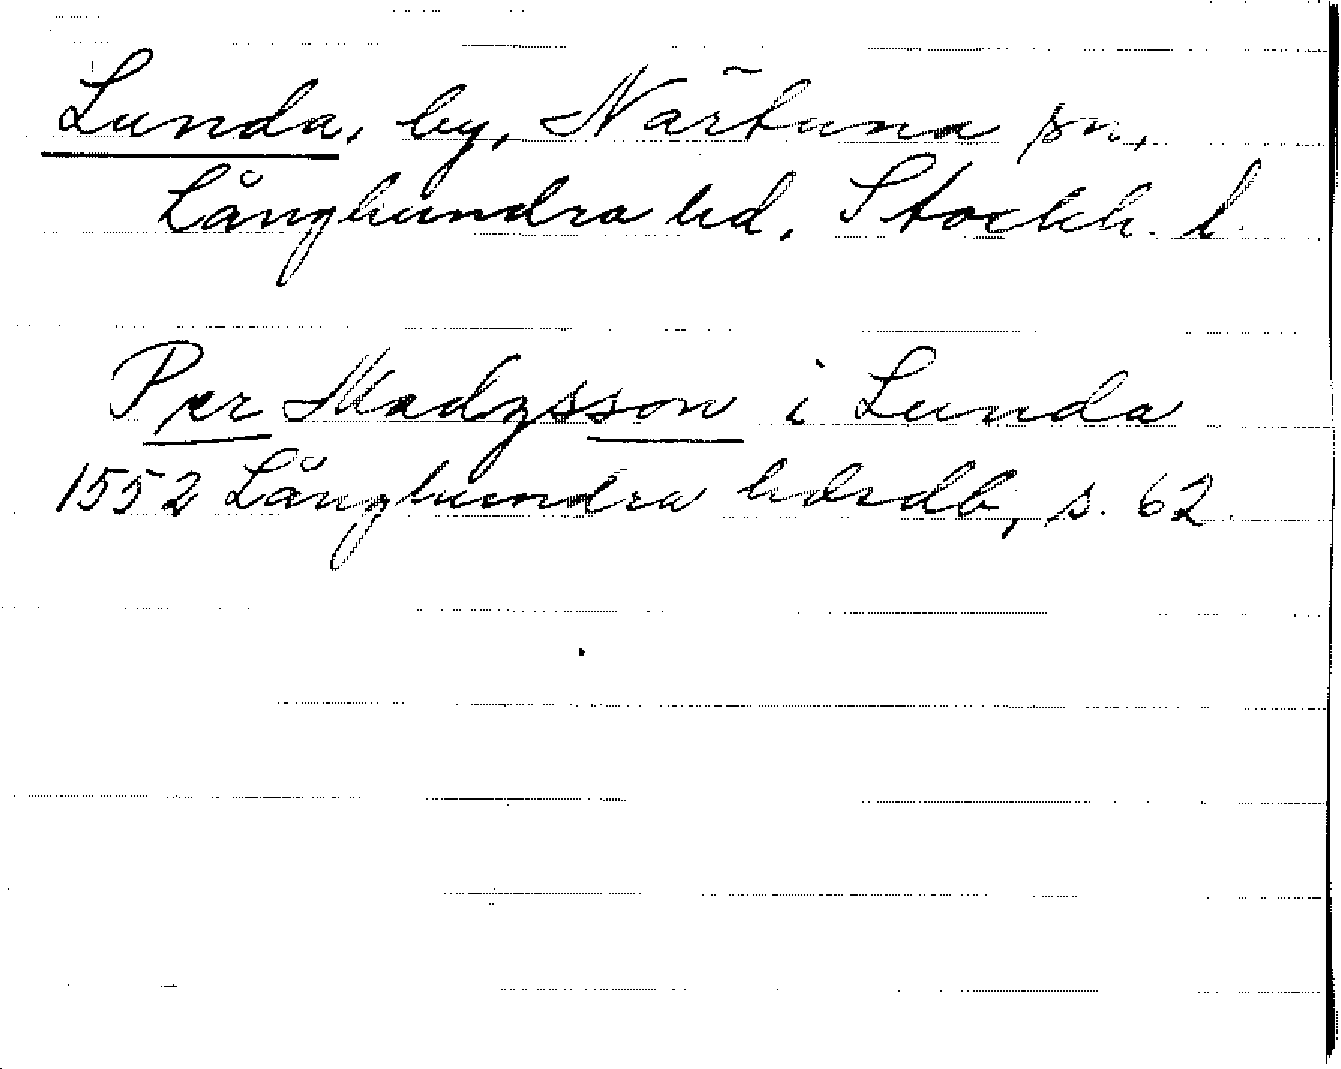 Lunda, by, Närtuna sn,
Långhundra hd, Stockh. l.
Per Madzsson i Lunda
1552 Långhundra hdrdb, s. 62.